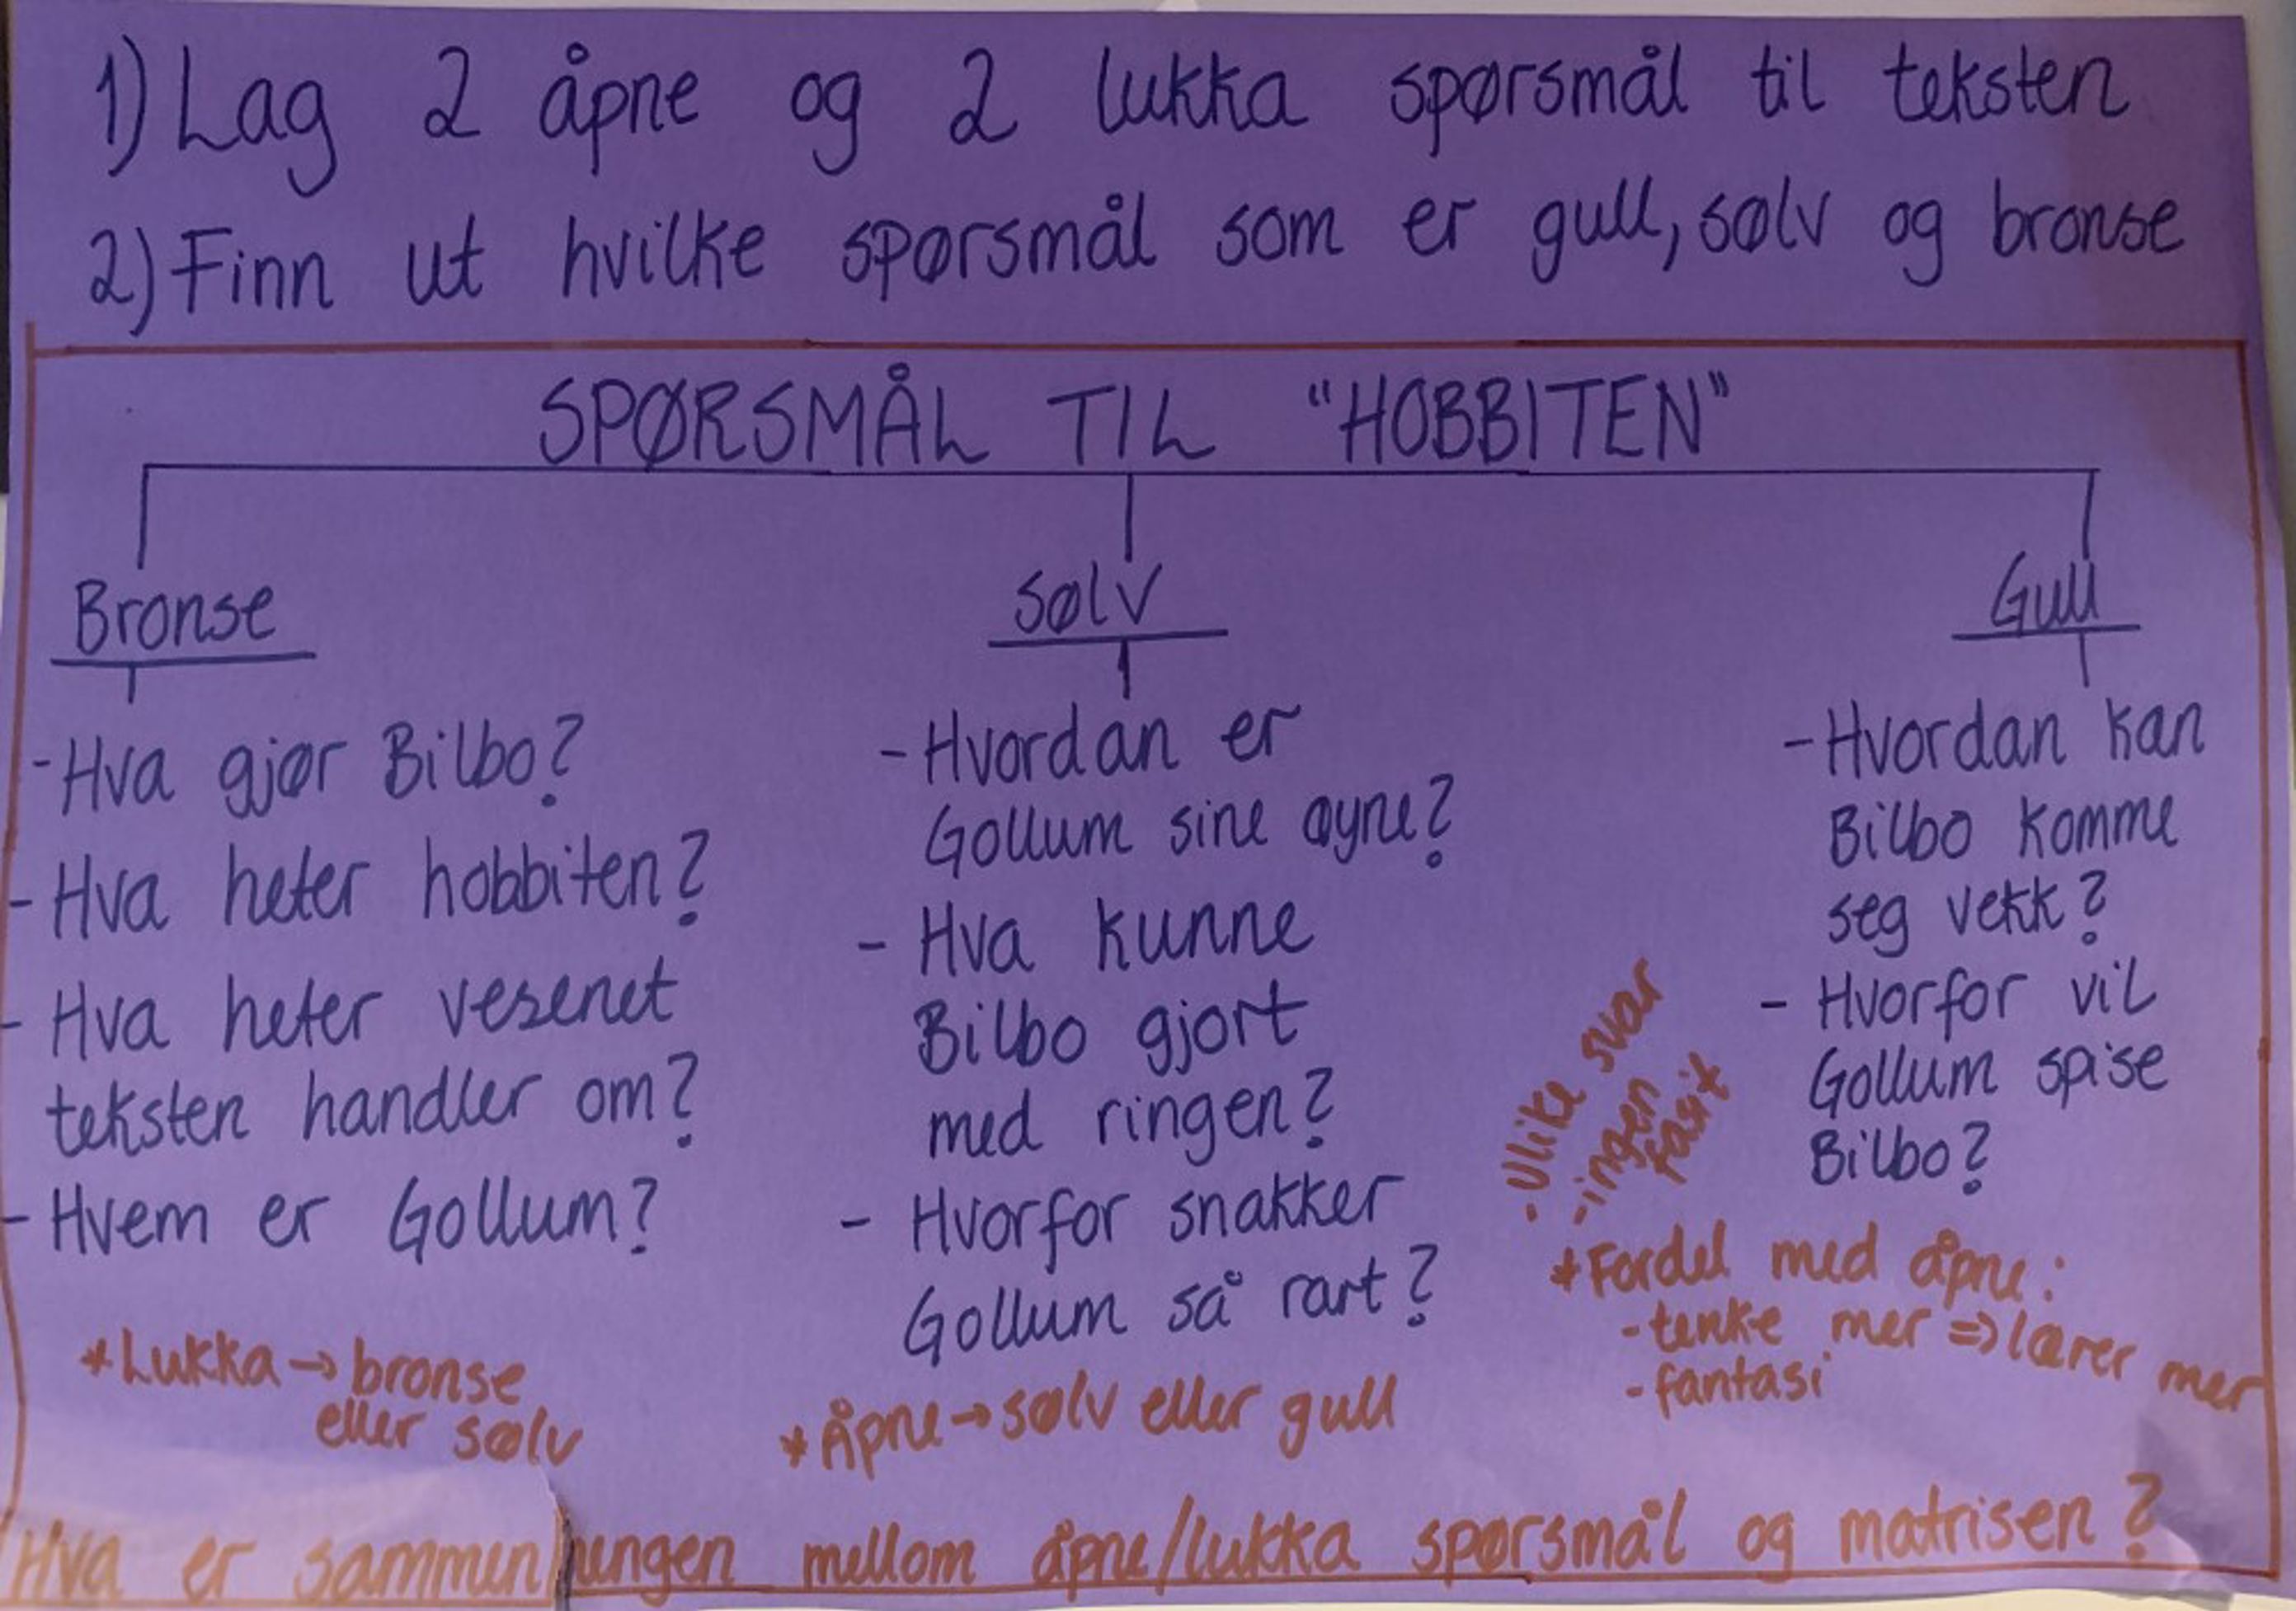 1) Lag 2 åpne og 2 lukka spørsmål til teksten
2) Finn ut hvilke spørsmål som er gull, sølv og bronse
SPØRSMÅL TIL "HOBBITEN"
Bronse
- Hva gjør Bilbo?
- Hva heter hobbiten?
- Hva heter vesenet
teksten handler om?
- Hvem er Gollum?
* Lukka → bronse
eller sølv
Sølv
- Hvordan er
Gollum sine øyne?
- Hva kunne
Bilbo gjort
med ringen?
- Hvorfor snakker
Gollum så rart?
* Åpne → sølv eller gull
Gull
- Hvordan kan
Bilbo komme
seg vekk?
- Hvorfor vil
Gollum spise
Bilbo?
- Ulike svar
- ingen
fasit
* Fordel med åpne:
- tenke mer => lærer mer
- fantasi
Hva er sammenhengen mellom åpne/lukka spørsmål og matrisen?